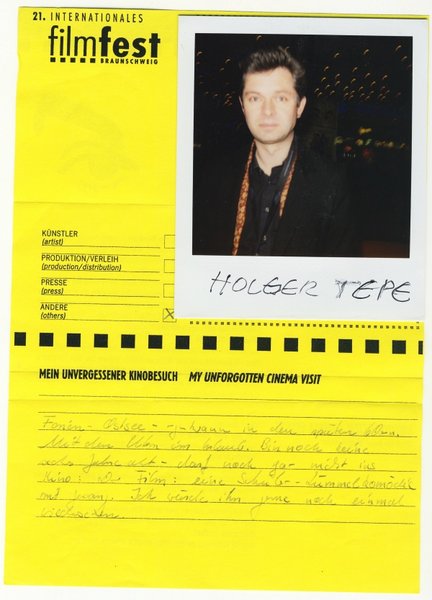 21. INTERNATIONALES
filmfest
BRAUNSCHWEIG
KÜNSTLER
(artist)
PRODUKTION/VERLEIH
(production/distribution)
PRESSE
(press)
ANDERE
(others) X
HOLGER TEPE
MEIN UNVERGESSENER KINOBESUCH MY UNFORGOTTEN CINEMA VISIT
Ferien - Ostsee - irgendwann in den späten 60ern.
Mit den Eltern im Urlaub. Bin noch keine
sechs Jahre alt - darf noch gar nicht ins
Kino: Der Film: eine Schüler-Lümmelkomödie
mit Ich würde ihn gerne noch einmal
wiedersehen.